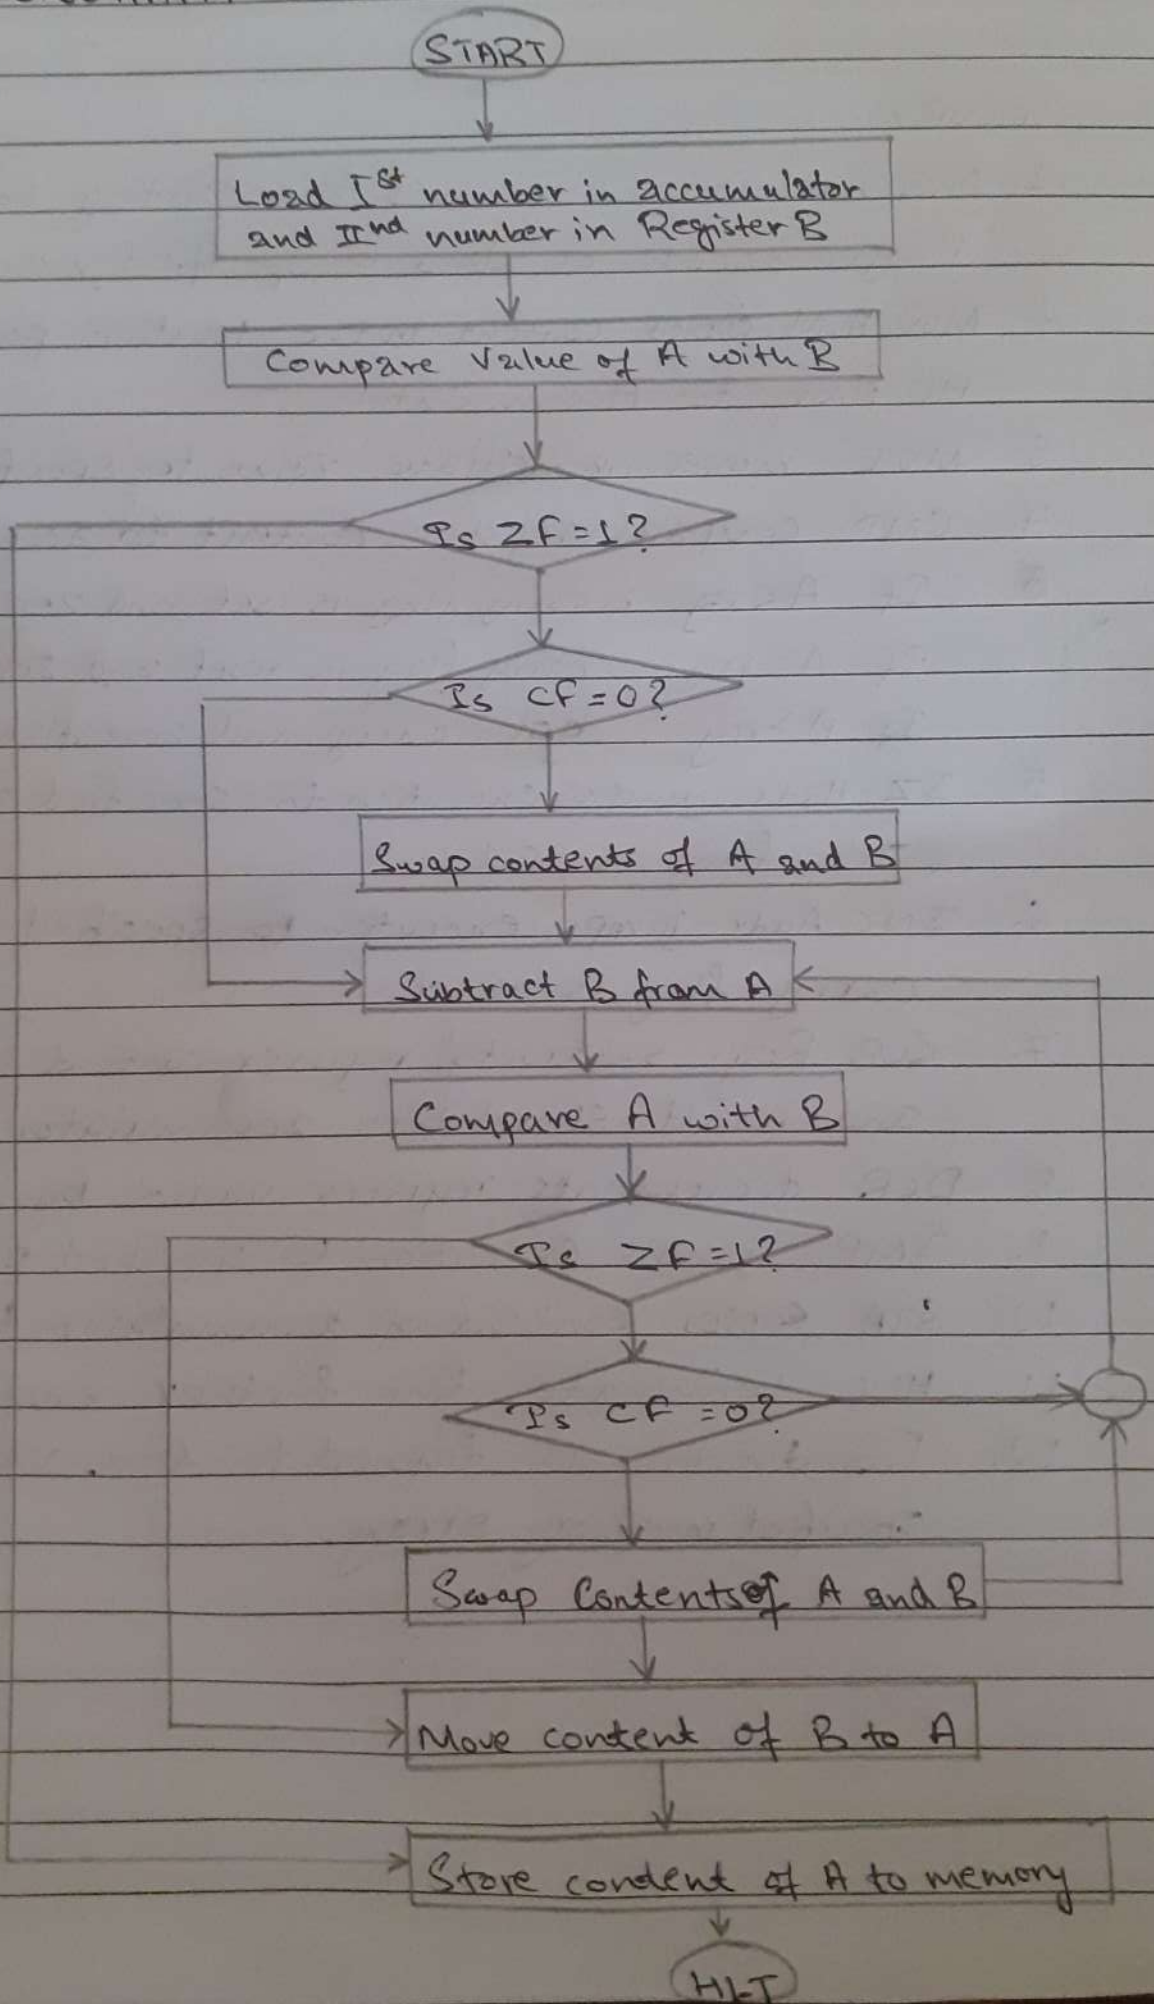 START
Load Ist number in accumulator
and IInd number in Register B
Compare Value of A with B
Is ZF=1?
Is CF=0?
Swap contents of A and B
Subtract B from A
Compare A with B
Is ZF=1?
Is CF=0?
Swap Contents of A and B
Move content of B to A
Store content of A to memory
HLT